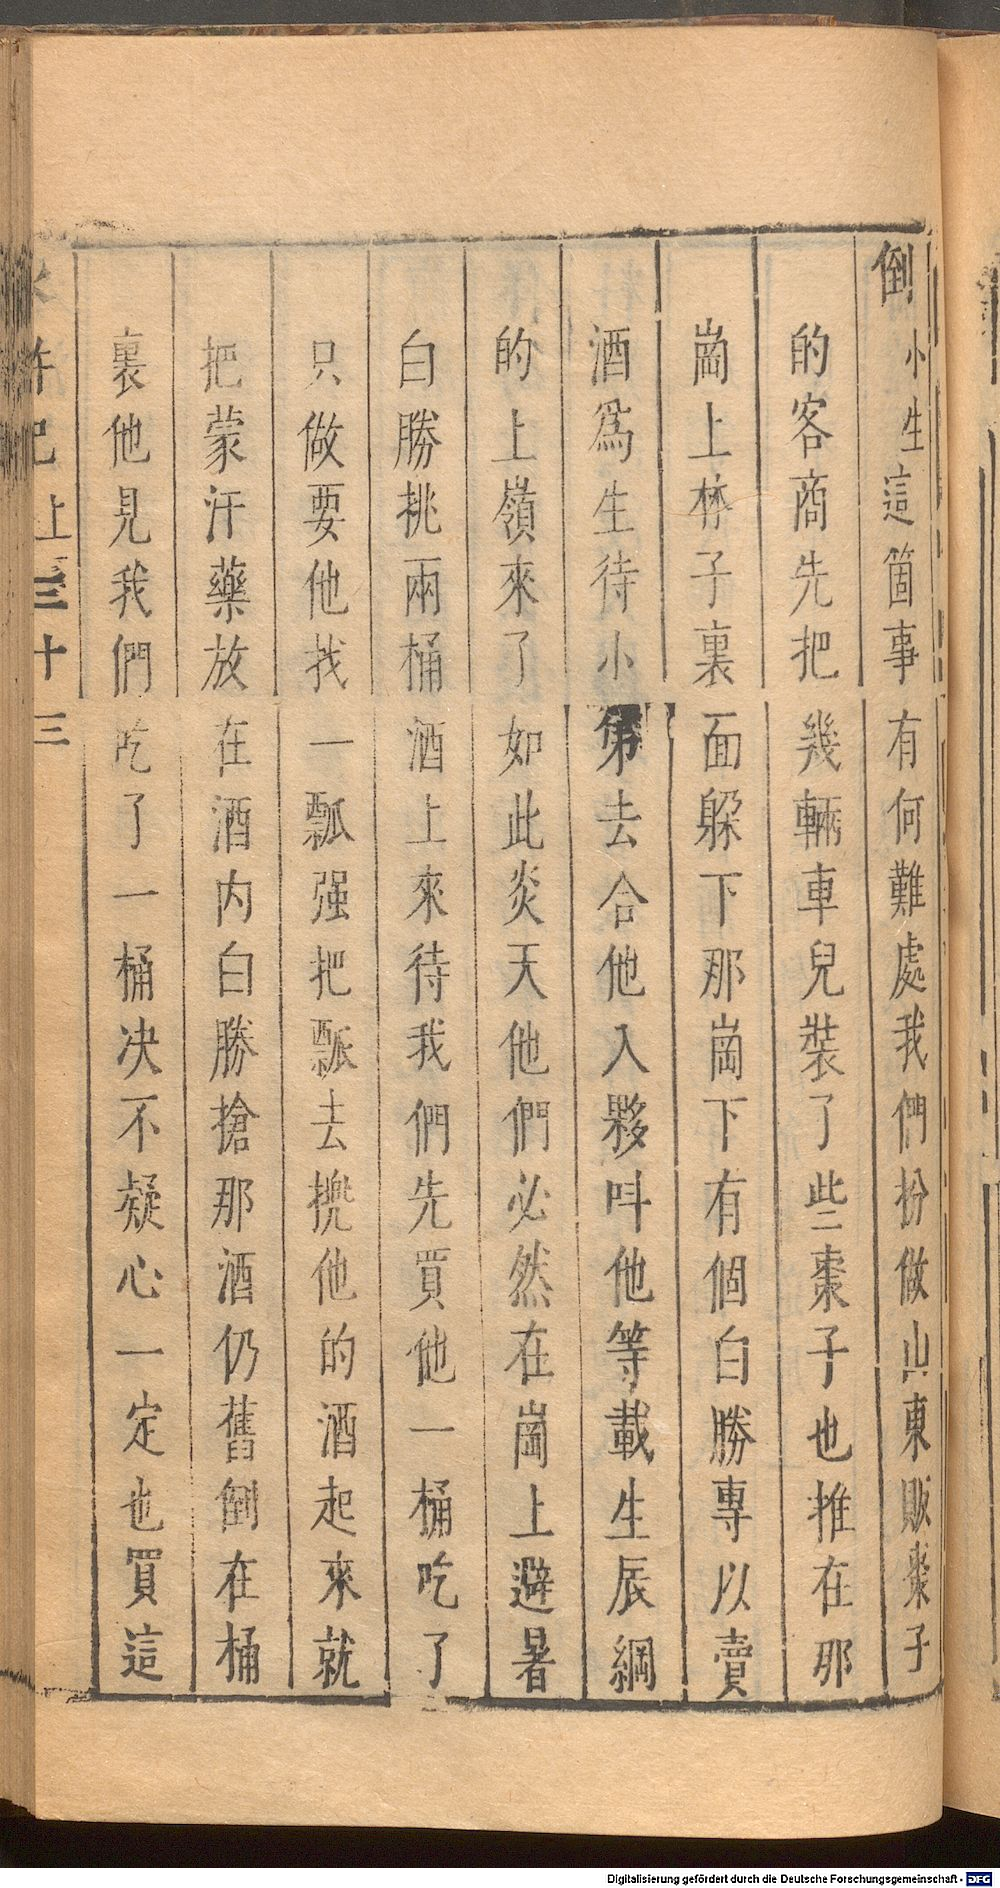 倒小生這箇事有何難處我們扮做山東販棗子
的客商先把幾輛車兒裝了些棗子也推在那
崗上林子裏面躲下那崗下有個白勝專以賣
酒爲生待小弟去合他入夥呌他等載生辰綱
的上嶺來了如此炎天他們必然在崗上避暑
白勝挑兩桶酒上來待我們先買他一桶吃了
只做要他找一瓢强把瓢去攙他的酒起來就
把蒙汗藥放在酒内白勝搶那酒仍舊倒在桶
裏他見我們吃了一桶决不疑心一定也買這
水滸記上 三十三
Digitalisierung gefördert durch die Deutsche Forschungsgemeinschaft - DFG